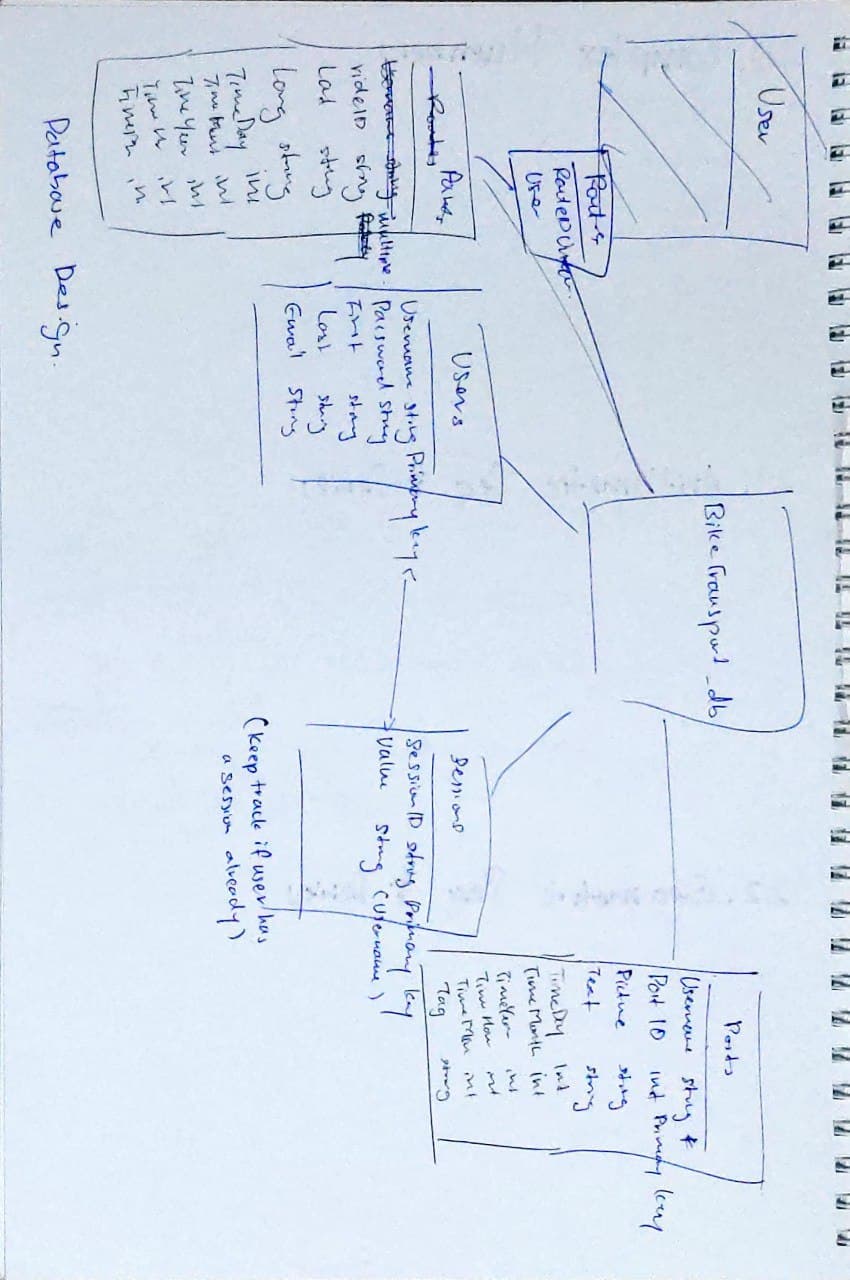 User
BikeTransport_db
Routes
RouteID
User
Routes
rideID string
Lat string
Long string
TimeDay int
int
TimeYear int
int
Users
Username string Primary key
Password string
First string
Last string
Email string
Sessions
SessionID string Primary key
Value string (Username)
(keep track if user has
a session already)
Posts
Username string *
Post ID int Primary key
Picture string
Text string
TimeDay int
TimeMonth int
TimeYear int
TimeHour int
TimeMin int
Tag string
Database Design.